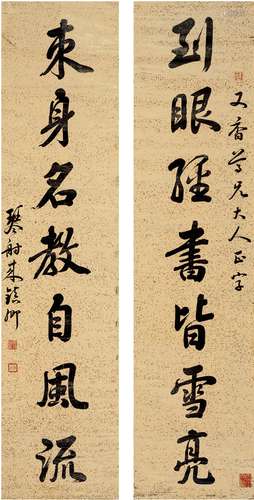 到眼經書皆雪亮
又香尊兄大人正字
束身名教自風流
琴